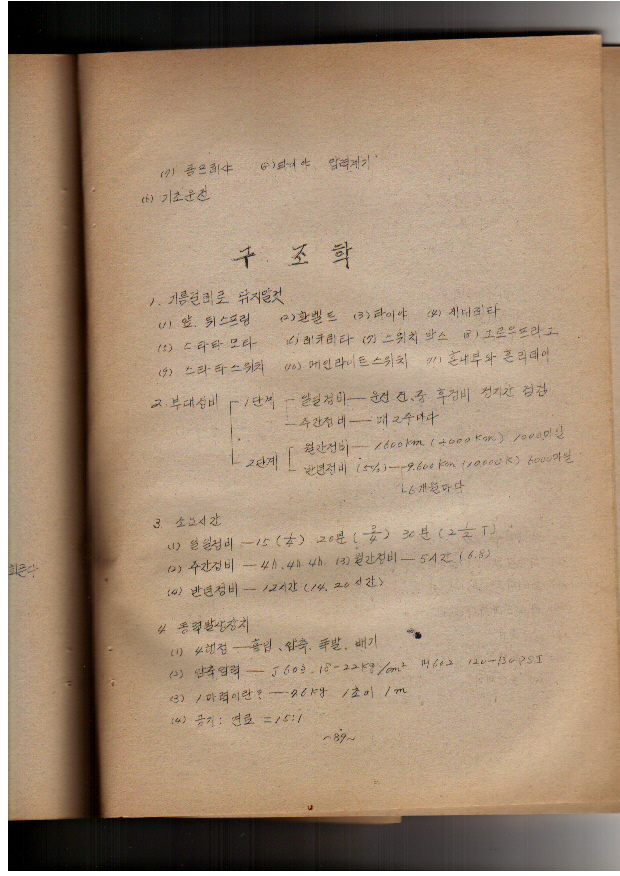 (7) 콤프레샤 (8) 타이야 압력계기
(6) 기초운전
구조학
1. 기름걸레로 닦지말것
(1) 앞, 뒤스프링 (2) 환벨트 (3) 타이야 (4) 제너레타
(5) 스타타 모타 (6) 레귤레타 (7) 스위치 박스 (8)
(9) 스타타스위치 (10) 메인라이트스위치 (11)
2. 부대정비 1단계 일일정비 — 운전 전, 중 후정비 정지간 점검
주간정비 — 매 2주마다
2단계 월간정비 — 1600km 1000마일
반년정비 (5%) — 9,600km (10000K) 6000마일
6개월마다
3 소요시간
(1) 일일정비 — 15 (1/4) 20분 (3/4) 30분 (2 1/2 T)
(2) 주간정비 — 4h, 4h, 4h. (3) 월간정비 — 5시간 (6.8)
(4) 반년정비 — 12시간 (14, 20시간)
4 동력발생장치
(1) 4행정 — 흡입, 압축, 폭발, 배기
(2) 압축압력 — J603. 18-22kg/cm² M602 120-130PSI
(3) 1마력이란? — 1초에 1m
(4) 공기 : 연료 = 15:1
~89~